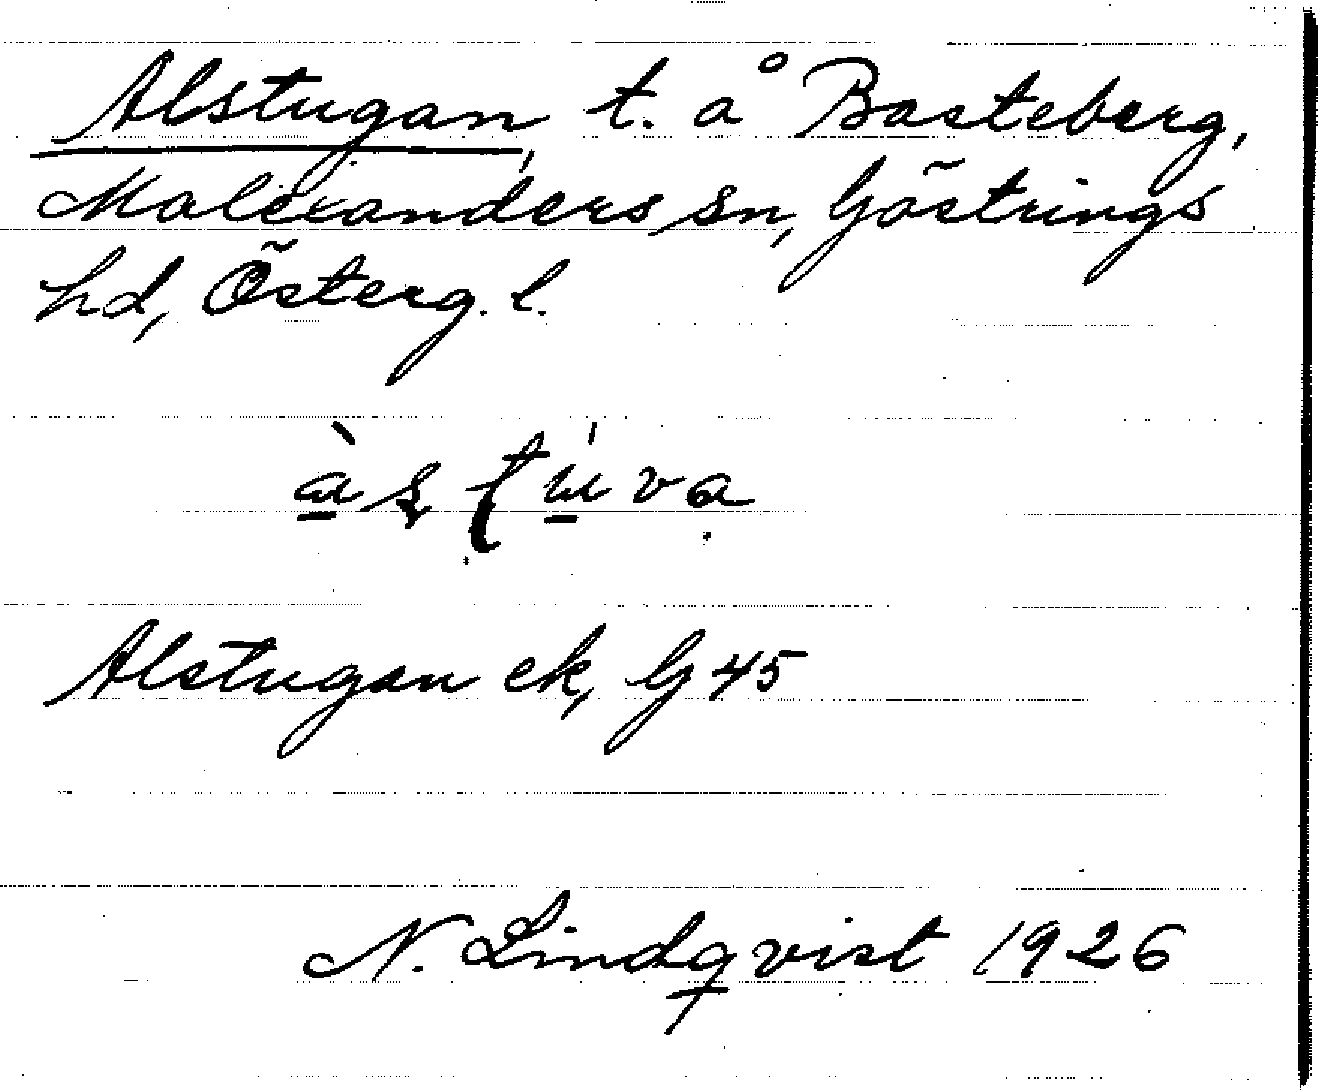 Alstugan, t. å Basteberg,
Malexanders sn, Göstrings
hd, Österg. l.
Alstugan ek, G 45
N. Lindqvist 1926